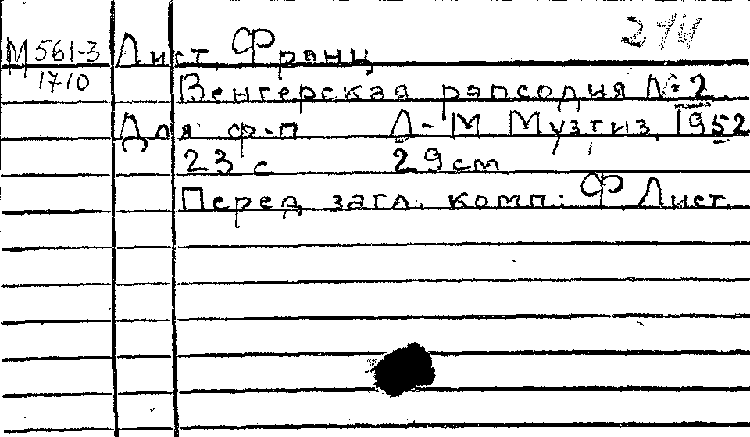 214
М 561-3 Лист Франц
1710
Венгерская рапсодия № 2.
Для ф-п Л-М Музгиз, 1952
23 с 29 cm
Перед загл. комп: Ф Лист.